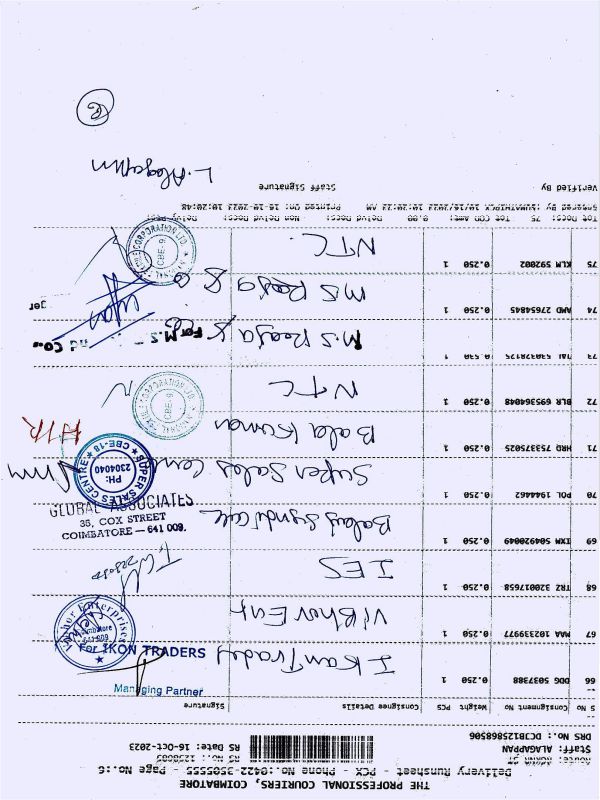 THE PROFESSIONAL COURIERS, COIMBATORE
Delivery Runsheet - PCX - Phone No.:0422-3505555 - Page No.:6
Staff: ALAGAPPAN RS Date: 16-Oct-2023
DRS No.: DCB12568506
S No Consignment No Weight PCS Consignee Details Signature
66 DDG 5037388 0.250 1 Ikan Traders
Managing Partner
For IKON TRADERS
67 MAA 102339977 0.250 1 Vibhor Ent
68 TRZ 320017658 0.250 1 IES
69 IXM 504920049 0.250 1 Balaji Syndicate
GLOBAL ASSOCIATES
35, COX STREET
COIMBATORE — 641 009.
70 POL 1944462 0.250 1 Super Sales Cent
SUPER SALES CENTRE
PH: 2304040
CBE-18
71 HRQ 753375025 0.250 1 Bala Kumar
72 BLR 695364048 0.250 1 NTC
CBE-9
73 0.530 1 M.S Raaja & Co
For M.S
Co.,
74 AMD 27654845 0.250 1 MS Raaja & Co
ger
75 KLM 592002 0.250 1 NTC.
CORPORATION LTD.
CBE-9
Tot Docs: 75 Tot COD Amt: 0.00 Delvd Docs: Non Delvd Docs:
Entered By :SUMATHIPCX 10/16/2023 10:20:32 AM Printed On: 16-10-2023 10:20:48
Verified By Staff Signature
L. Alagappan